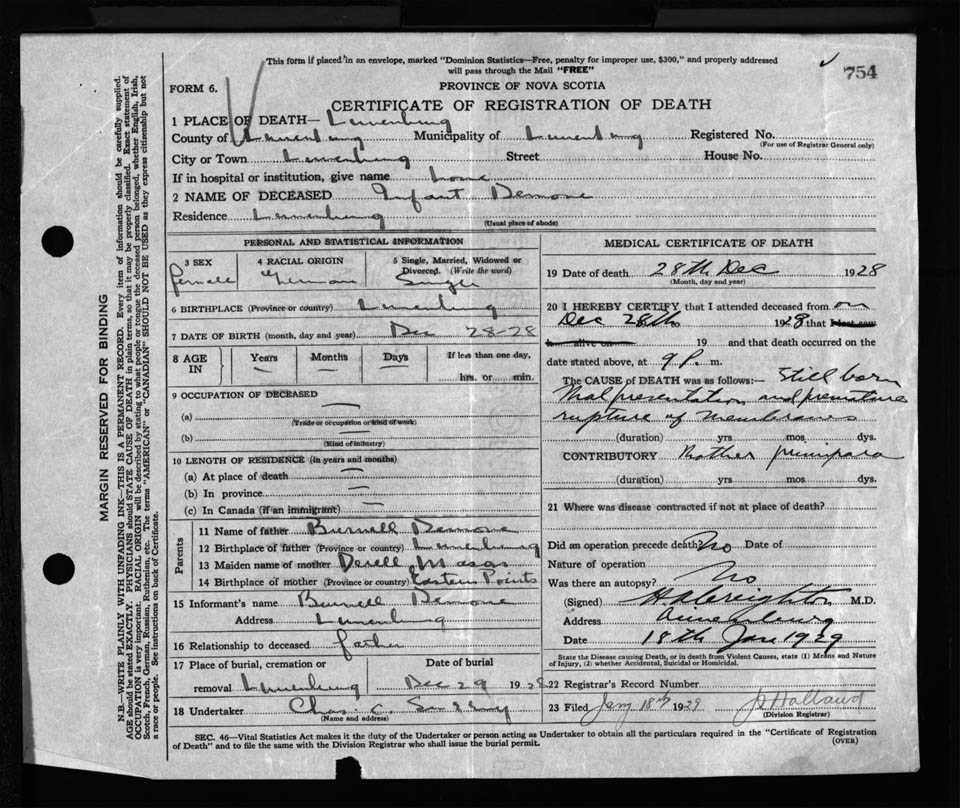 This form if placed in an envelope, marked "Dominion Statistics—Free, penalty for improper use, $300," and properly addressed
will pass through the Mail "FREE"
754
FORM 6.
PROVINCE OF NOVA SCOTIA
CERTIFICATE OF REGISTRATION OF DEATH
1 PLACE OF DEATH— Lunenburg
County of Lunenburg Municipality of Lunenburg Registered No.
(For use of Registrar General only)
City or Town Lunenburg Street House No.
If in hospital or institution, give name home
2 NAME OF DECEASED Infant Demone
Residence Lunenburg
(Usual place of abode)
PERSONAL AND STATISTICAL INFORMATION
3 SEX 4 RACIAL ORIGIN 5 Single, Married, Widowed or
Divorced. (Write the word)
female German Single
6 BIRTHPLACE (Province or country) Lunenburg
7 DATE OF BIRTH (month, day and year) Dec 28-28
8 AGE IN Years Months Days If less than one day,
hrs. or min.
9 OCCUPATION OF DECEASED
(a)
(Trade or occupation or kind of work)
(b)
(Kind of industry)
10 LENGTH OF RESIDENCE (in years and months)
(a) At place of death
(b) In province
(c) In Canada (if an immigrant)
Parents
11 Name of father Burnell Demone
12 Birthplace of father (Province or country) Lunenburg
13 Maiden name of mother Mason
14 Birthplace of mother (Province or country) Eastern Points
15 Informant's name Burnell Demone
Address Lunenburg
16 Relationship to deceased father
17 Place of burial, cremation or Date of burial
removal Lunenburg Dec 29 1928
18 Undertaker Chas C.
(Name and address)
MEDICAL CERTIFICATE OF DEATH
19 Date of death 28th Dec 1928
(Month, day and year)
20 I HEREBY CERTIFY that I attended deceased from on
Dec 28th to 1928 that I last saw
h alive on 19 and that death occurred on the
date stated above, at 9 P. m.
The CAUSE OF DEATH was as follows:— Still born
Mal presentation and premature
rupture of membranes
(duration) yrs. mos. dys.
CONTRIBUTORY Mother primipara
(duration) yrs. mos. dys.
21 Where was disease contracted if not at place of death?
Did an operation precede death? No Date of
Nature of operation
Was there an autopsy? No
(Signed) M.D.
Address Lunenburg
Date 18th Jan 1929
State the Disease causing Death, or in death from Violent Causes, state (1) Means and Nature
of Injury, (2) whether Accidental, Suicidal or Homicidal.
22 Registrar's Record Number
23 Filed Jany 18th 1929 Holland
(Division Registrar)
SEC. 46—Vital Statistics Act makes it the duty of the Undertaker or person acting as Undertaker to obtain all the particulars required in the "Certificate of Registration
of Death" and to file the same with the Division Registrar who shall issue the burial permit.
(OVER)
MARGIN RESERVED FOR BINDING
N.B.—WRITE PLAINLY WITH UNFADING INK—THIS IS A PERMANENT RECORD. Every item of information should be carefully supplied.
AGE should be stated EXACTLY. PHYSICIANS should STATE CAUSE OF DEATH in plain terms, so that it may be properly classified. Exact statement of
OCCUPATION is very important. RACIAL ORIGIN will be described by stating to what people or tongue the deceased person belonged, whether English, Irish,
Scotch, French, German, Russian, Ruthenian, etc. The terms "AMERICAN" or "CANADIAN" SHOULD NOT BE USED as they express citizenship but not
a race or people. See instructions on back of Certificate.